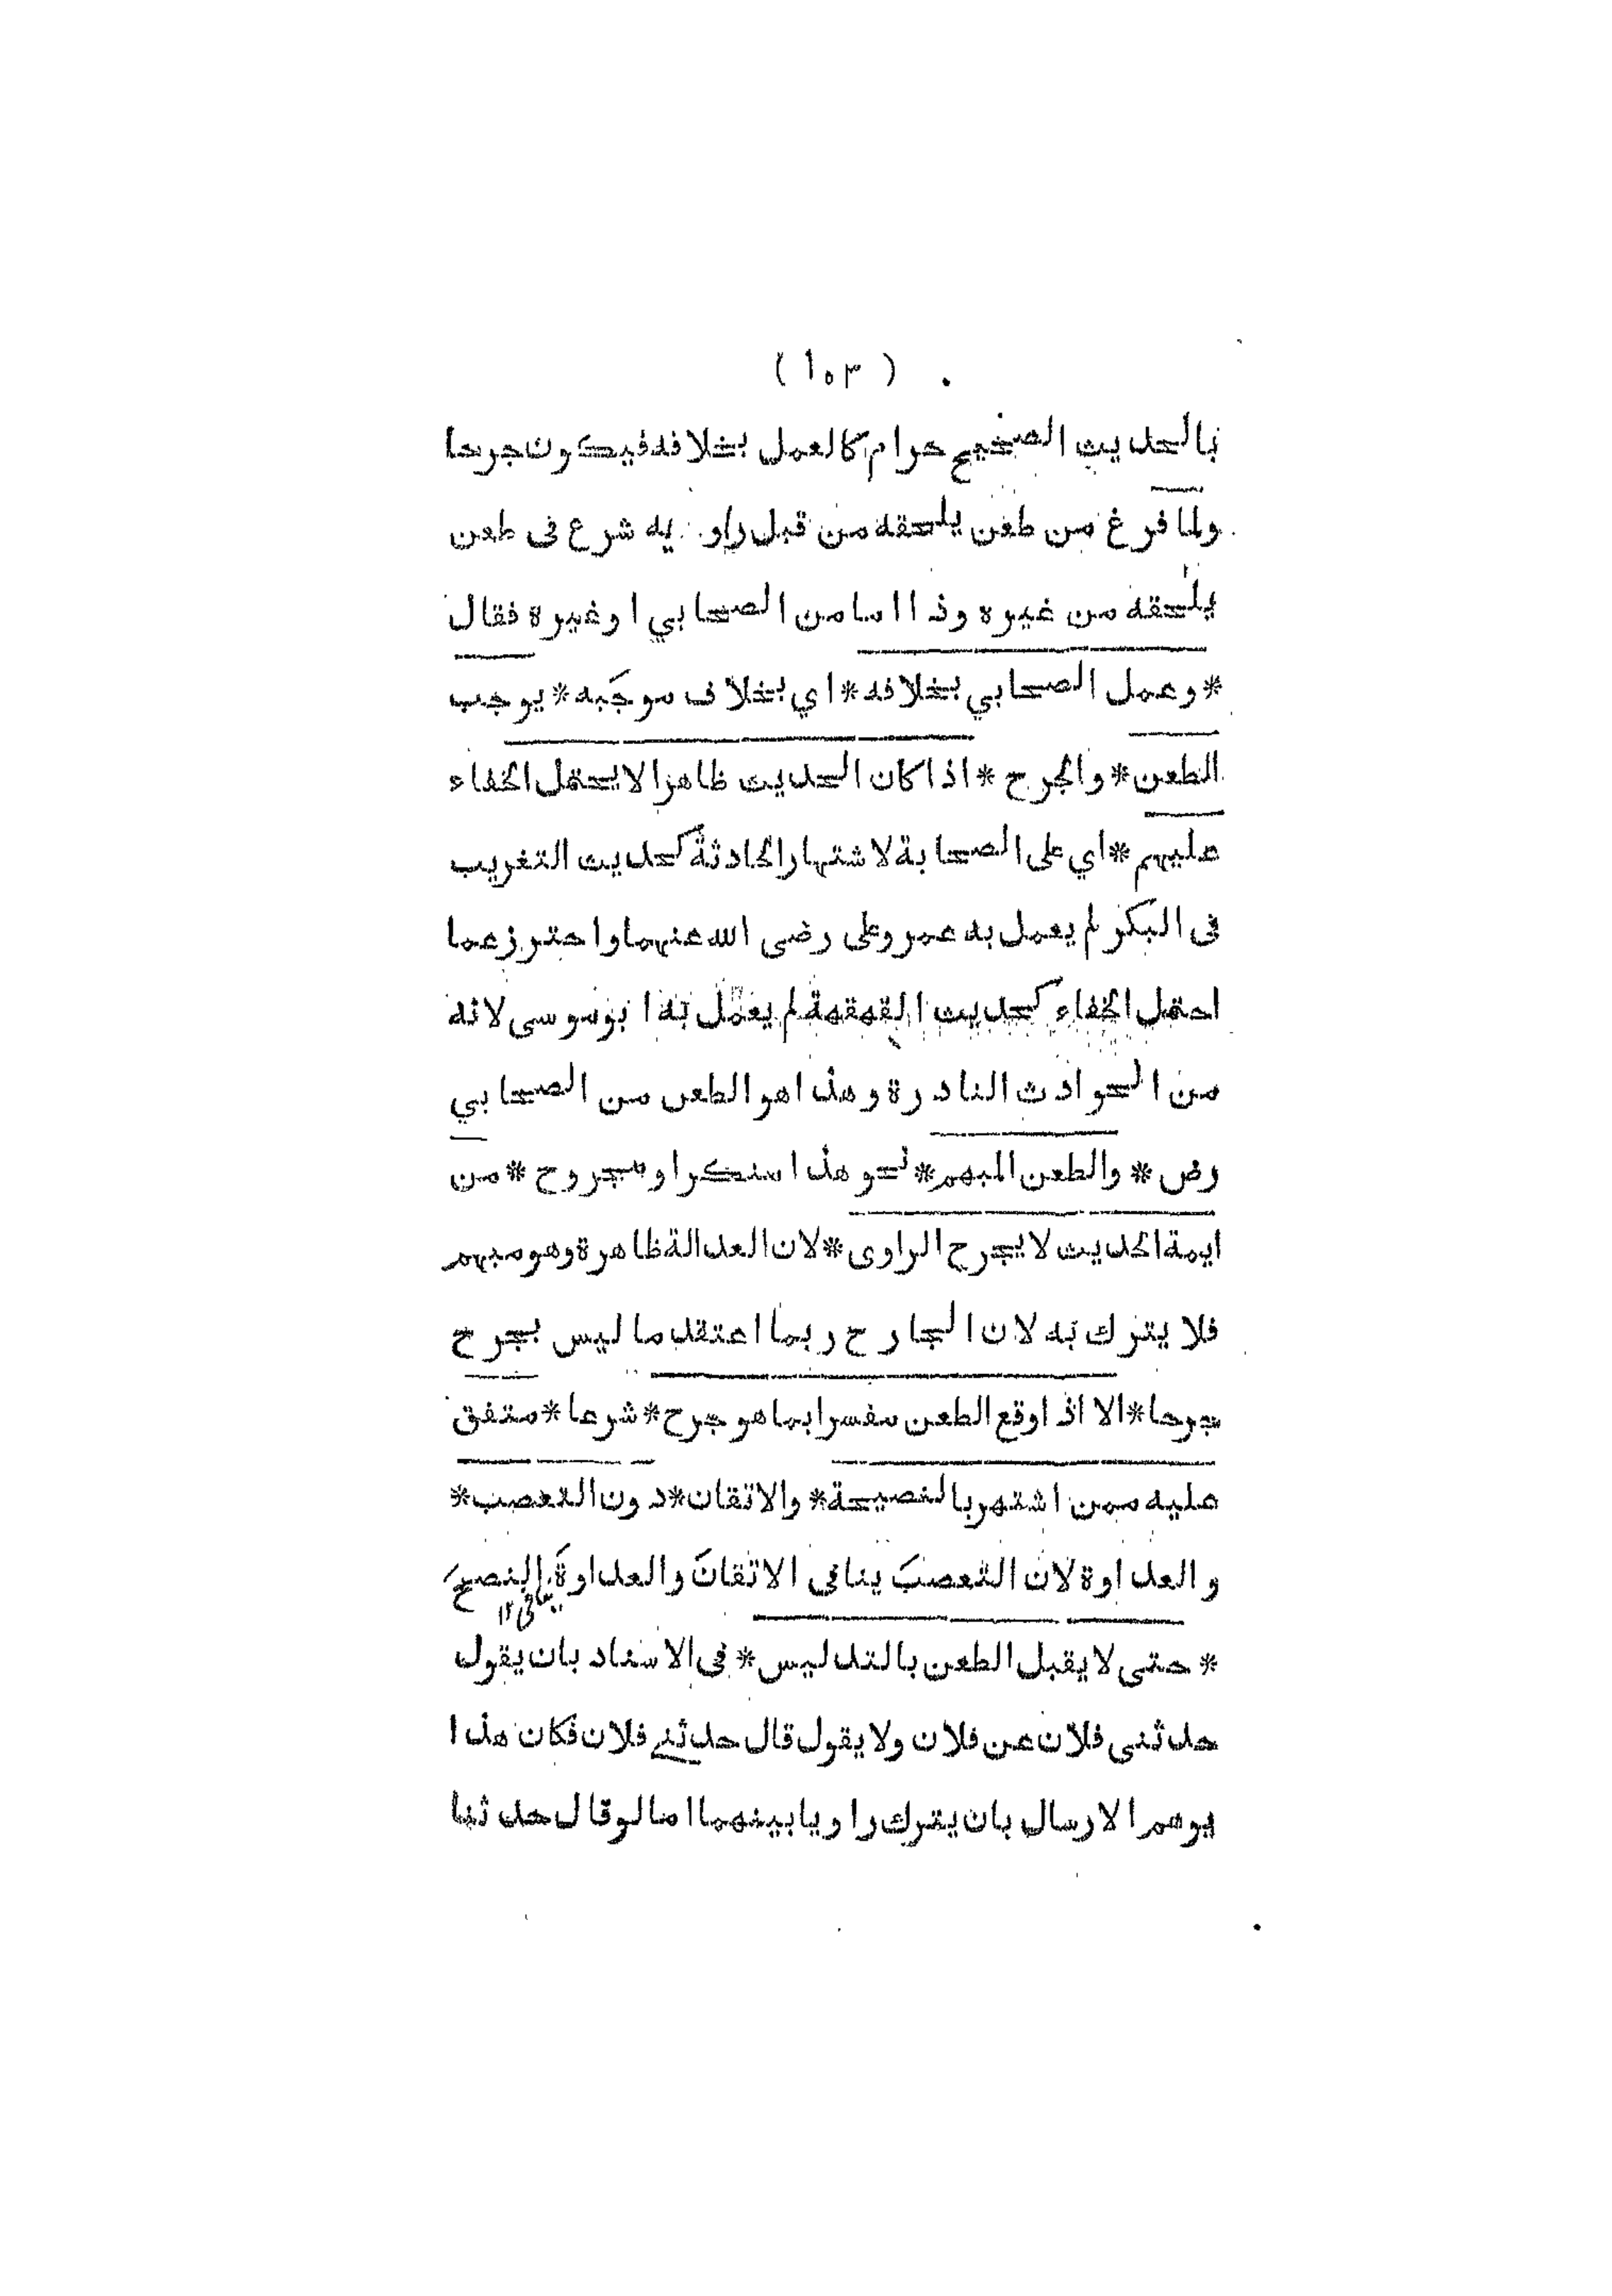 ( ١٥٣ )
بالحديث الصحيح حرام كالعمل بخلافه فيكون جرحا
ولما فرغ من طعن يلحقه من قبل راويه شرع فى طعن
يلحقه من غيره وذا اما من الصحابي او غيره فقال
* وعمل الصحابي بخلافه * اي بخلاف موجَبه * يوجب
الطعن * والجرح * اذا كان الحديث ظاهرا لا يحتمل الخفاء
عليهم * اي على الصحابة لاشتهار الحادثة كحديث التغريب
فى البكر لم يعمل به عمر وعلى رضى الله عنهما واحترز عما
احتمل الخفاء كحديث القهقهة لم يعمل به ابو موسى لانه
من الحوادث النادرة وهذا هو الطعن من الصحابي
رض * والطعن المبهم * نحو هذا منكر او مجروح * من
ايمة الحديث لا يجرح الراوى * لان العدالة ظاهرة وهو مبهم
فلا يترك به لان الجارح ربما اعتقد ما ليس بجرح
جرحا * الا اذا وقع الطعن مفسرا بما هو جرح * شرعا * متفق
عليه ممن اشتهر بالنصيحة * والاتقان * دون التعصب *
و العداوة لان التعصبَ ينافى الاتقانَ والعداوةَ النصح
ينافى ١٢
* حتى لا يقبل الطعن بالتدليس * فى الاسناد بان يقول
حدثنى فلان عن فلان ولا يقول قال حدثنے فلان فكان هذا
يوهم الارسال بان يترك راويا بينهما اما لو قال حدثنا